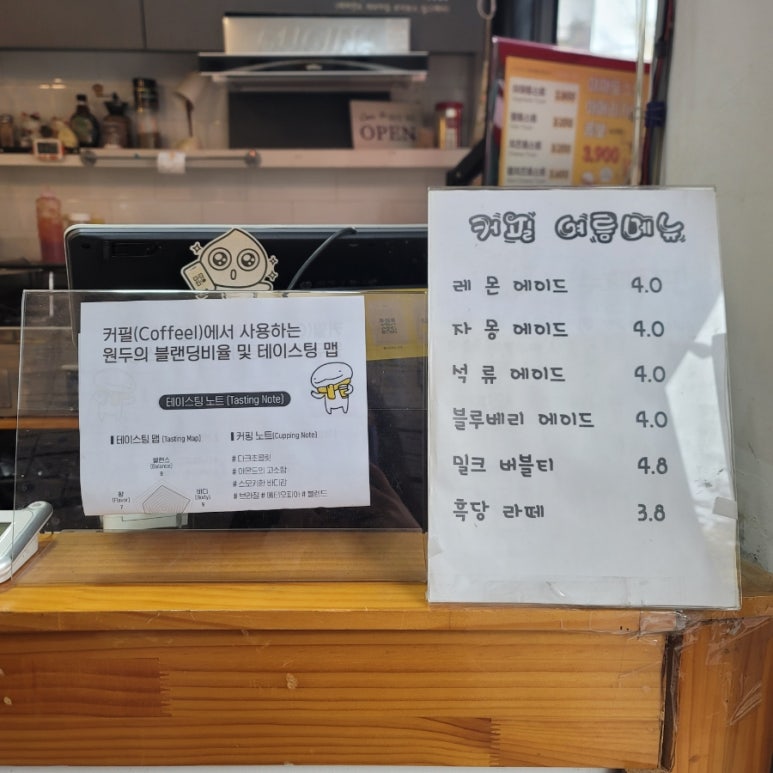 OPEN
3,900
커필(Coffeel)에서 사용하는
원두의 블랜딩비율 및 테이스팅 맵
테이스팅 노트 (Tasting Note)
테이스팅 맵 (Tasting Map)
밸런스
(Balance)
8
향
(Flavor)
7
바디
(Body)
9
커핑 노트(Cupping Note)
# 다크초콜릿
# 아몬드의 고소함
# 스모키한 바디감
# 브라질 # 에티오피아 # 블렌드
커필 여름메뉴
레몬 에이드 4.0
자몽 에이드 4.0
석류 에이드 4.0
블루베리 에이드 4.0
밀크 버블티 4.8
흑당 라떼 3.8